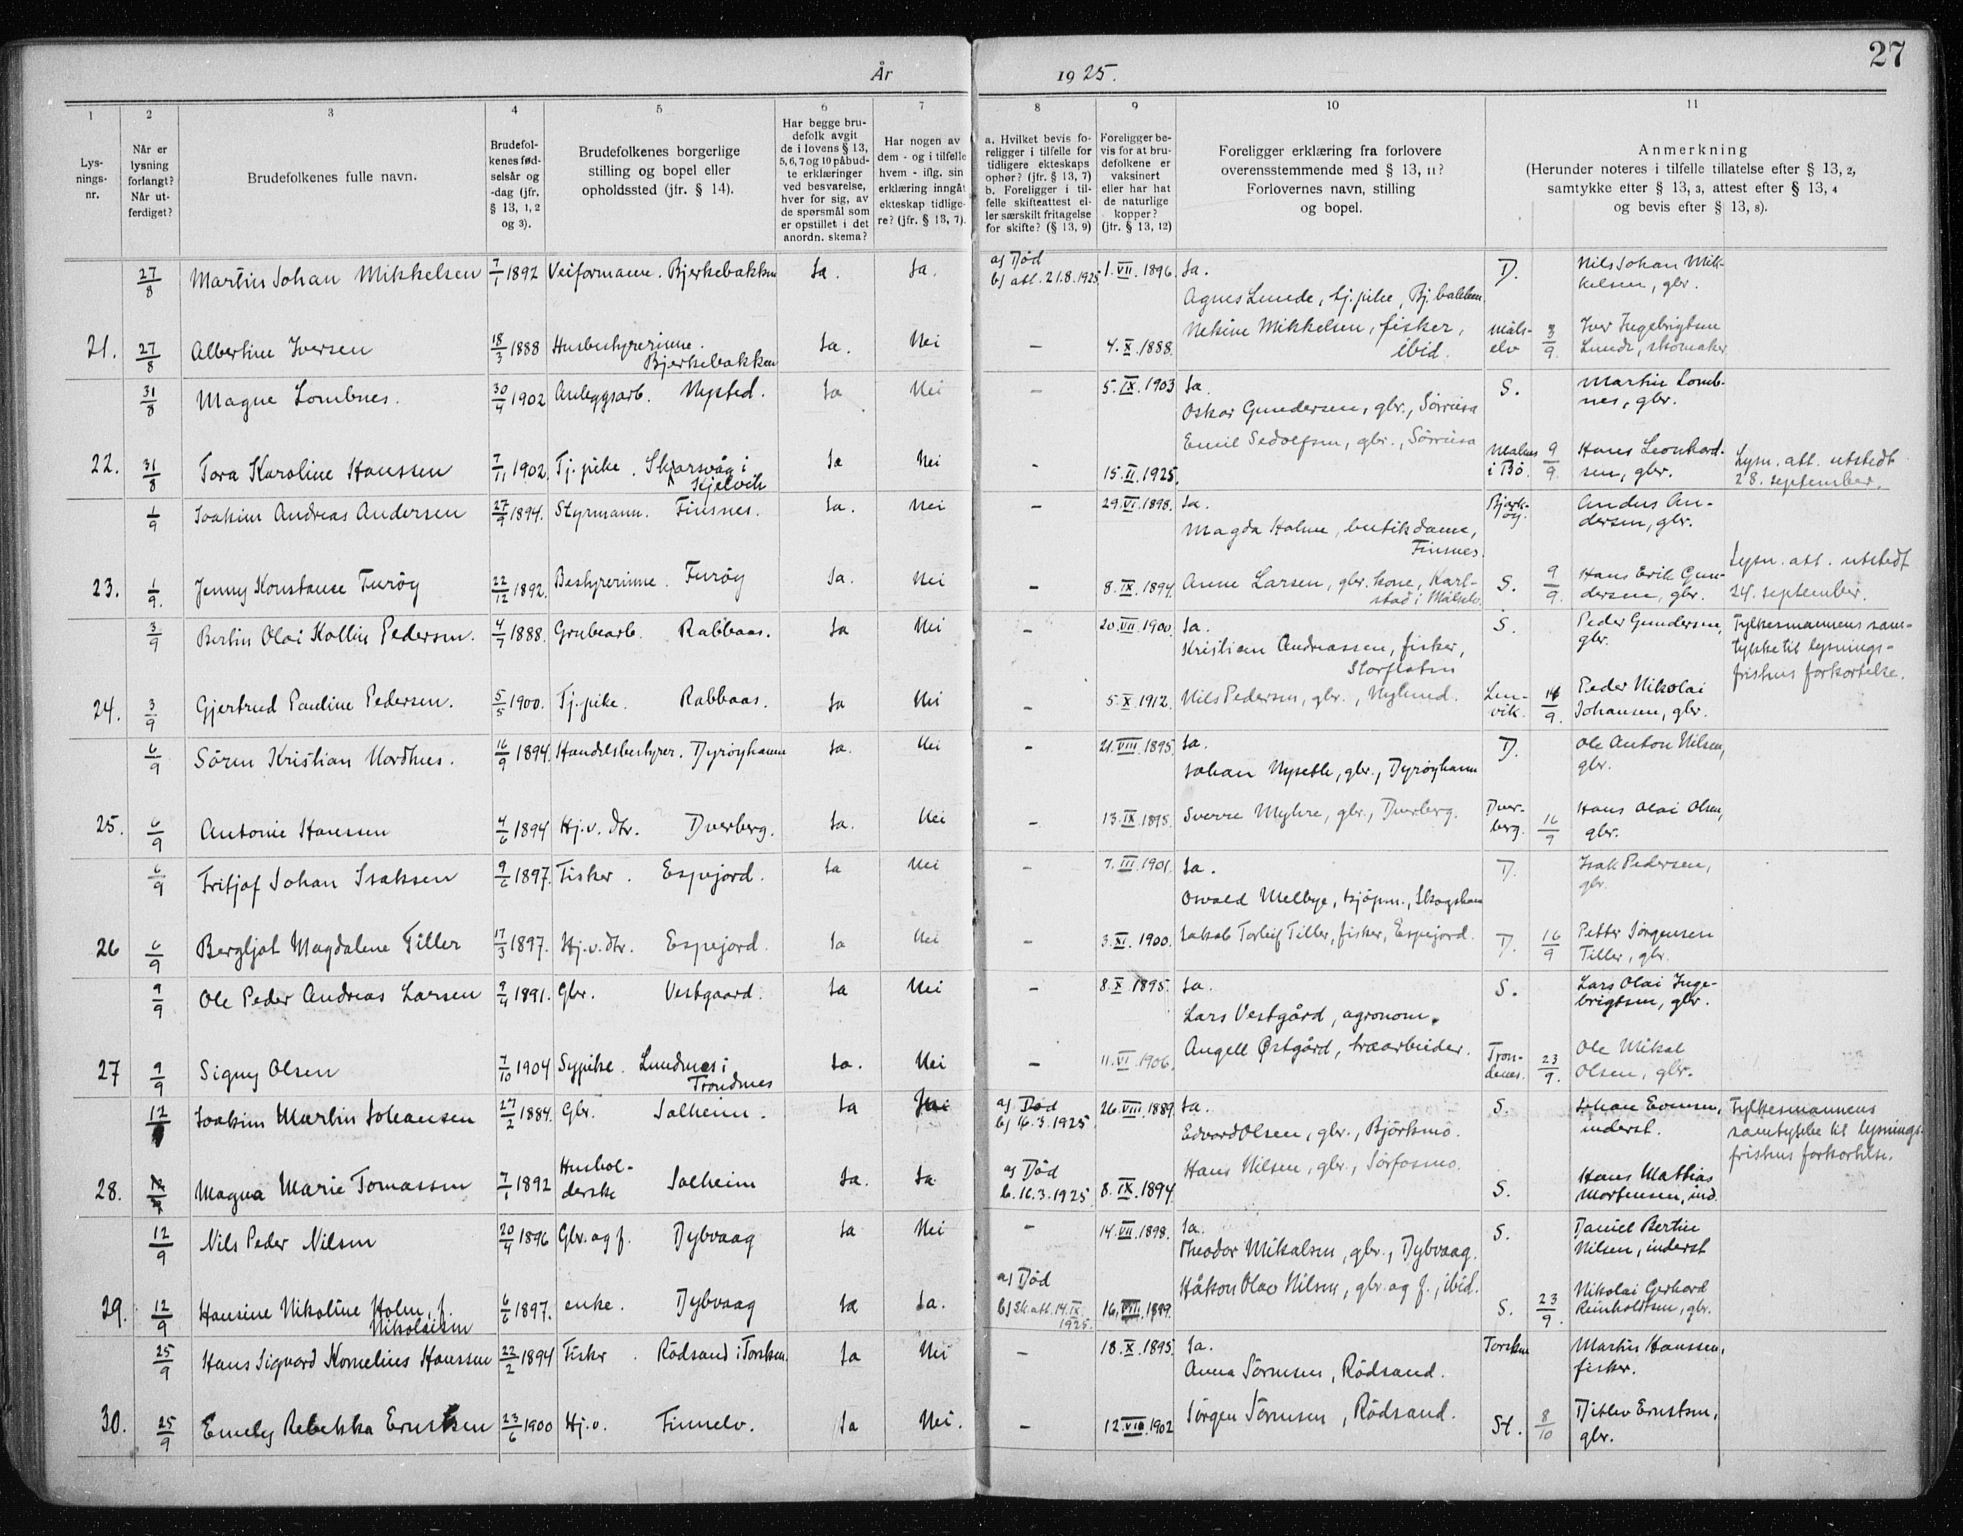 År 1925.
27
1 2 3 4 5 6 7 8 9 10 11
Lysningsnr.
Når er lysning forlangt? Når utferdiget?
Brudefolkenes fulle navn.
Brudefolkenes fødselsår og -dag (jfr. § 13, 1, 2 og 3).
Brudefolkenes borgerlige stilling og bopel eller opholdssted (jfr. § 14).
Har begge brudefolk avgit de i lovens § 13, 5, 6, 7 og 10 påbudte erklæringer ved besvarelse, hver for sig, av de spørsmål som er opstillet i det anordn. skema?
Har nogen av dem - og i tilfelle hvem - iflg. sin erklæring inngåt ekteskap tidligere? (jfr. § 13, 7).
a. Hvilket bevis foreligger i tilfelle for tidligere ekteskaps ophør? (jfr. § 13, 7) b. Foreligger i tilfelle skifteattest eller særskilt fritagelse for skifte? (§ 13, 9)
Foreligger bevis for at brudefolkene er vaksinert eller har hat de naturlige kopper? (jfr. § 13, 12)
Foreligger erklæring fra forlovere overensstemmende med § 13, 11? Forlovernes navn, stilling og bopel.
Anmerkning (Herunder noteres i tilfelle tillatelse efter § 13, 2, samtykke etter § 13, 3, attest efter § 13, 4 og bevis efter § 13, 8).
27/8 Martin Johan Mikkelsen 7/1 1892 Veiformann. Bjerkebakken Ja. Ja. a) Død b) att. 21.8.1925 1.VII.1896. Ja. Agnes Lunde, tj.pike, Bj.bakken. D. Nils Johan Mikkelsen, gbr.
21. 27/8 Albertine Iversen 18/3 1888 Husbestyrerinne. Bjerkebakken Ja. Nei — 4.X.1888. Nekine Mikkelsen, fisker, ibid. Målselv 3/9. Iver Ingebrigtsen Lunde, skomaker
31/8 Magne Lombnes. 30/4 1902 Anleggsarb. Nysted. Ja Nei — 5.IX.1903 Ja. Oskar Gundersen, gbr., Sørreisa S. Martin Lombnes, gbr.
22. 31/8 Tora Karoline Hanssen 7/11 1902. Tj.pike. Skarsvåg i Kjelvik Ja Nei - 15.II.1925. Emil Sedolfsen, gbr., Sørreisa Malnes i Bø. 9/9. Hans Leonhardsen, gbr. Lysn. att. utstedt 28. september.
1/9 Joakim Andreas Andersen 27/9 1894. Styrmann. Finsnes. Ja. Nei — 29.VI.1898. Ja. Magda Holme, butikdame, Finsnes. Bjarkøy. Anders Andersen, gbr.
23. 1/9. Jenny Konstanse Furøy 22/12 1892. Bestyrerinne. Furøy Ja. Nei — 8.IX.1894. Anne Larsen, gbr.kone, Karlstad i Målselv. S. 9/9. Hans Erik Gundersen, gbr. Lysn. att. utstedt 24. september.
3/9 Bertin Olai Kollin Pedersen. 4/7 1888. Grubearb. Rabbaas. Ja Nei — 20.VII.1900. Ja. Kristian Andreassen, fisker, Storflaten S. Peder Gundersen, gbr. Fylkesmannens samtykke til lysningsfristens forkortelse.
24. 3/9 Gjertrud Pauline Pedersen. 5/5 1900. Tj.pike. Rabbaas. Ja Nei — 5.X.1912. Nils Pedersen, gbr., Nylund. Lenvik. 14/9. Peder Nikolai Johansen, gbr.
6/9 Sören Kristian Nordhus. 16/9 1894. Handelsbestyrer. Dyröyhamn Ja. Nei - 21.VIII.1895. Ja. Johan Nyseth, gbr., Dyröyhamn D. Ole Anton Nilsen, gbr.
25. 6/9 Antonie Hanssen 4/6 1894 Hj.v. dtr. Dverberg. Ja. Nei — 13.IX.1895. Sverre Myhre, gbr., Dverberg. Dverberg. 16/9 Hans Olai Olsen, gbr.
6/9 Fritjof Johan Isaksen 9/6 1897. Fisker. Espejord. Ja Nei — 7.III.1901. Ja. Osvald Melbye, kjöpm., Skogshamn D. Isak Pedersen, gbr.
26 6/9 Bergljot Magdalene Tiller 17/3 1897. Hj.v.dtr. Espejord. Ja Nei — 3.XI.1900. Jakob Torleif Tiller, fisker, Espejord. D. 16/9 Petter Jørgensen Tiller, gbr.
9/9 Ole Peder Andreas Larsen 9/4 1891. Gbr. Vestgaard. Ja Nei — 8.X.1895. Ja. Lars Vestgård, agronom. S. Lars Olai Ingebrigtsen, gbr.
27 9/9 Signy Olsen 7/10 1904 Sypike. Lundnes i Trondnes Ja. Nei — 11.VI.1906. Angell Østgård, træarbeider. Trondenes. 23/9. Ole Mikal Olsen, gbr.
12/9 Joakim Martin Johansen 27/2 1884. Gbr. Solheim. Ja Nei a) Død b) 16.3.1925 26.VIII.1889. Ja. Edvard Olsen, gbr., Björkmo. S. Johan Evensen, inderst. Fylkesmannens samtykke til lysningsfristens forkortelse.
28. 12/9 Magna Marie Tomassen 7/1 1892 Husholderske Solheim Ja. Ja a) Død b. 16.3.1925 8.IX.1894. Hans Nilsen, gbr., Sørfosmo. S. Hans Mathias Mortensen, ind.
12/9 Nils Peder Nilsen 20/4 1896 Gbr. og f. Dybvaag Ja Nei — 14.VII.1898. Ja. Theodor Mikalsen, gbr., Dybvaag. S. Daniel Bertin Nilsen, inderst
29. 12/9 Hansine Nikoline Holm, f. Nikolaisen 6/6 1897. enke. Dybvaag Ja Ja. a) Død b) Sk.att. 14.IX 1925. 16.VIII.1899. Håkon Olav Nilsen, gbr. og f., ibid. S. 23/9. Nikolai Gerhard Reinholdtsen, gbr.
25/9 Hans Sigvard Kornelius Hanssen 22/2 1894 Fisker. Rödsand i Torsken. Ja Nei — 18.X.1895. Ja. Anna Sörensen, Rödsand. Torsken Martin Hanssen, fisker.
30. 25/9 Emely Rebekka Erntsen 23/6 1900 Hj.v. Finnelv. Ja Nei. — 12.VIII.1902 Jörgen Sörensen, Rödsand. St. 8/10 Ditlev Erntsen, gbr.